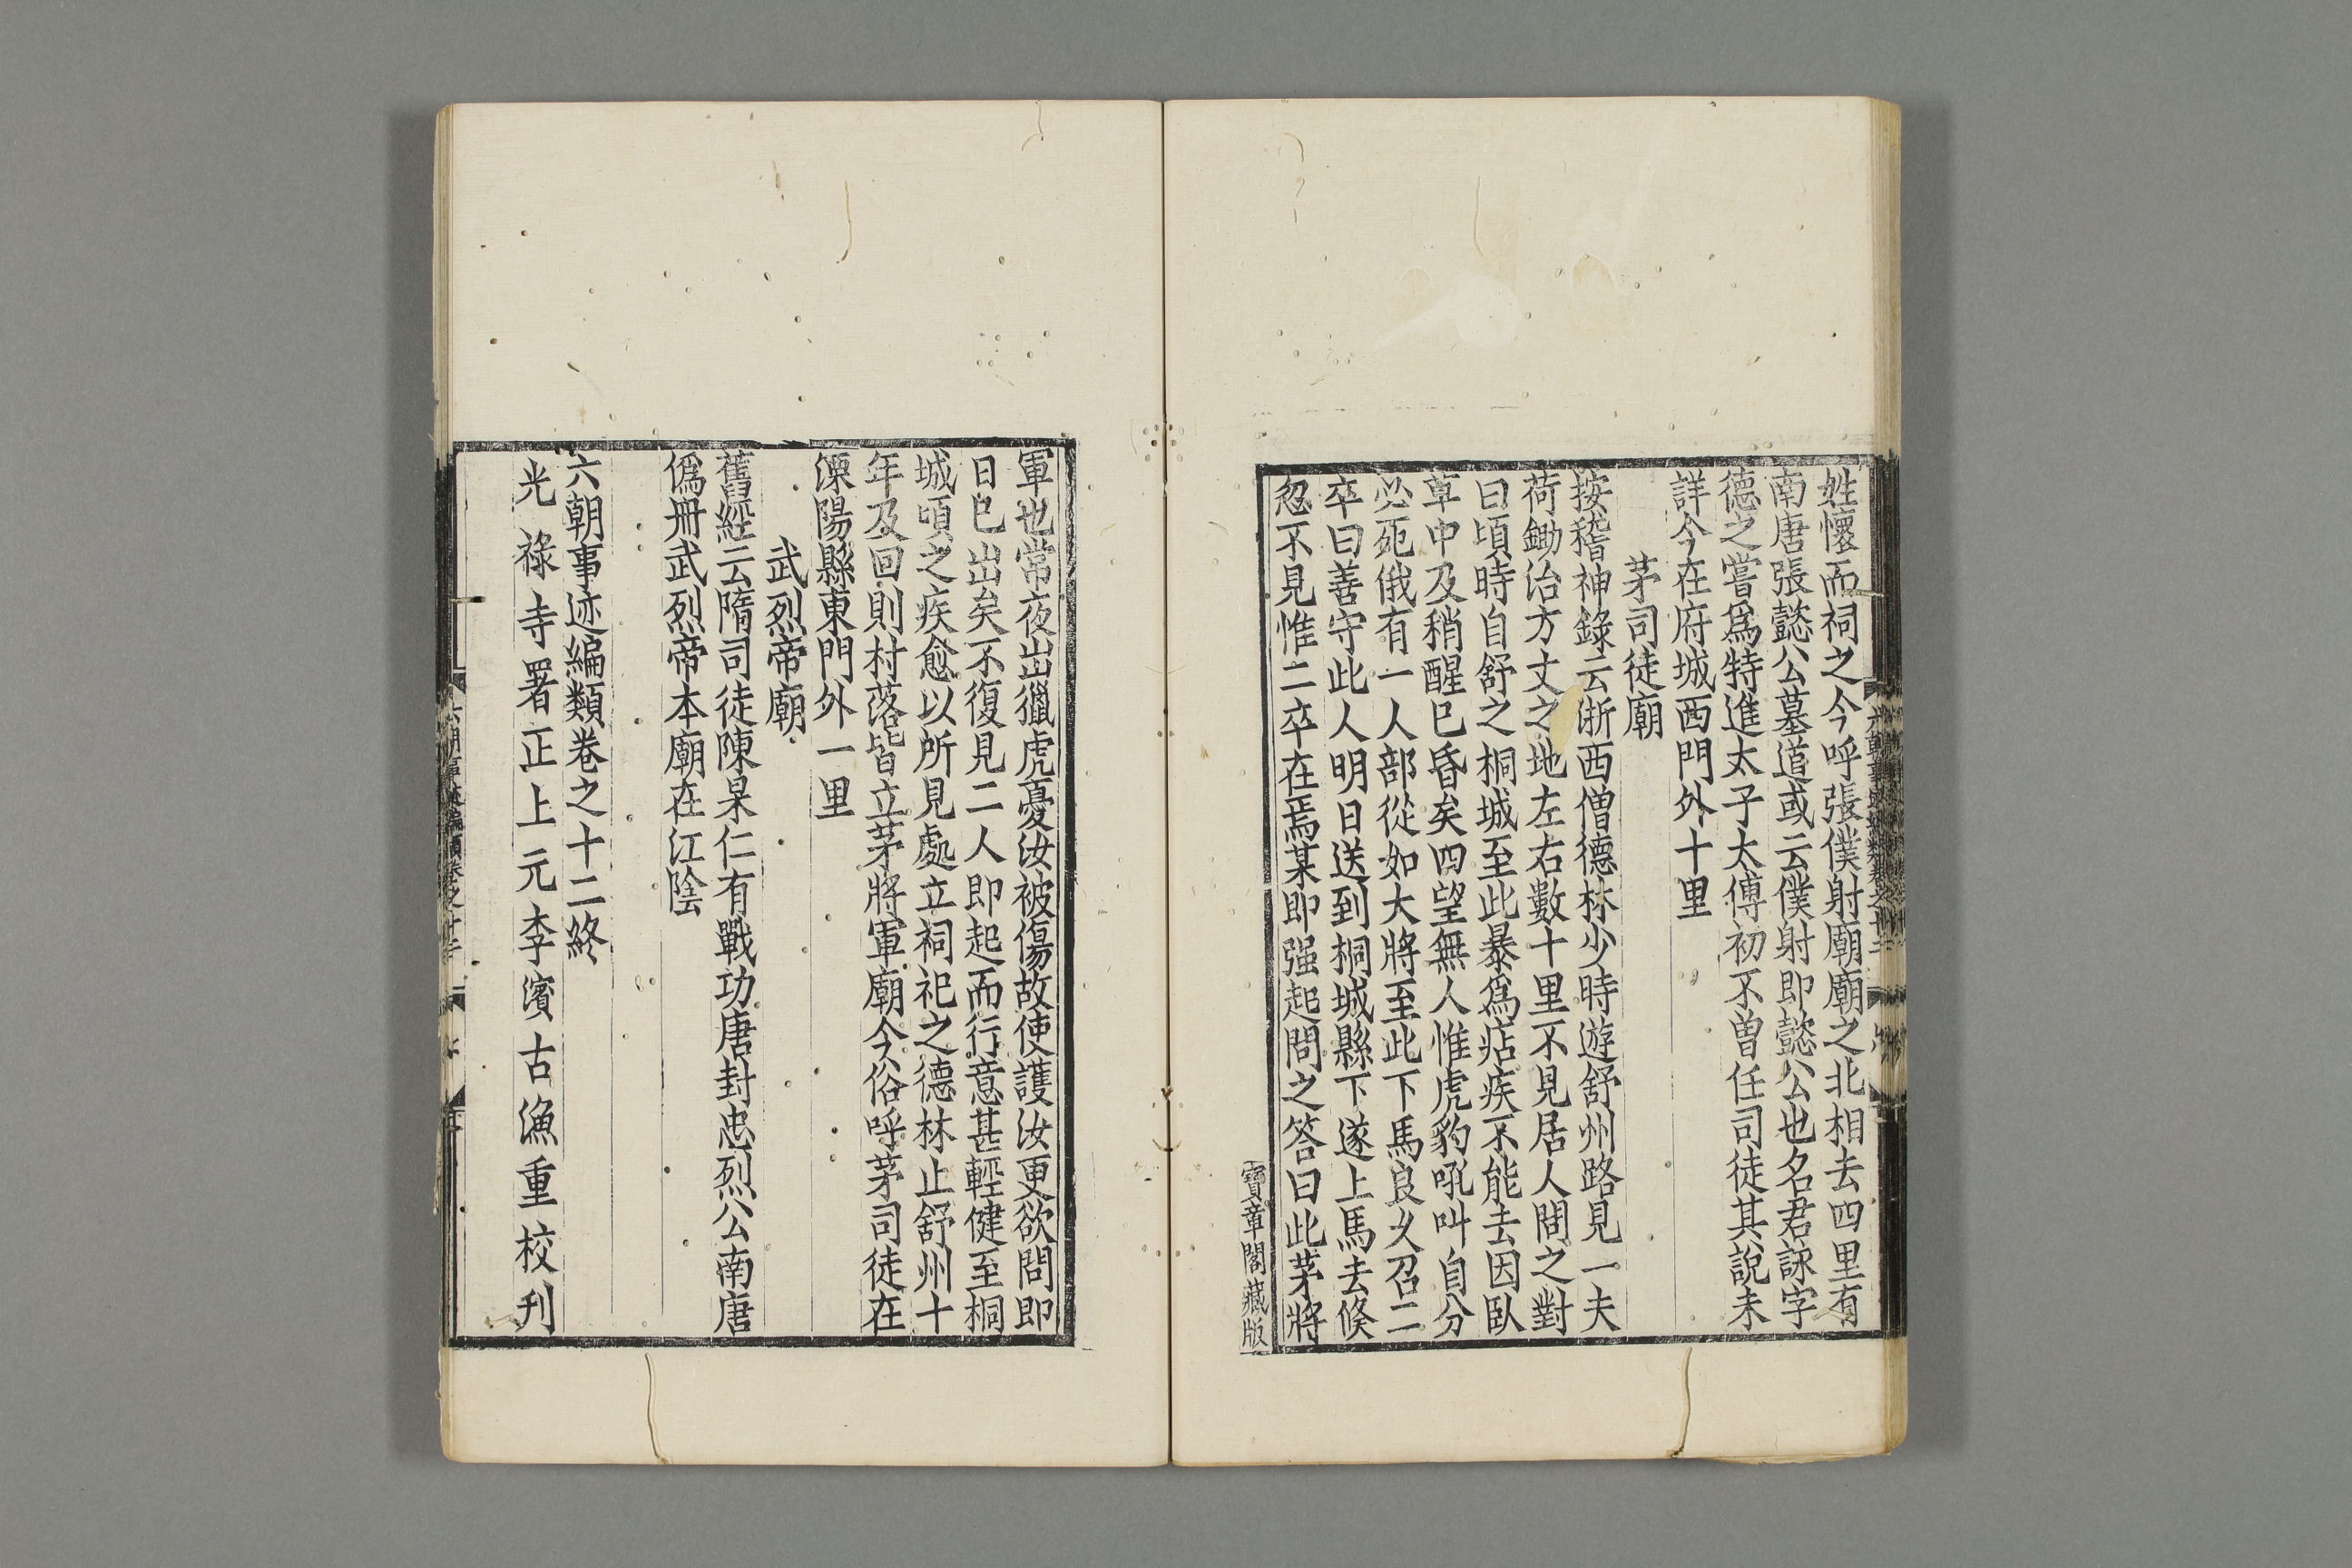 姓懷而祠之今呼張僕射廟廟之北相去四里有
南唐張懿公墓道或云僕射即懿公也名君詠字
德之嘗爲特進太子太傅初不曾任司徒其說未
詳今在府城西門外十里
茅司徒廟
按稽神錄云浙西僧德林少時遊舒州路見一夫
荷鋤治方丈之地左右數十里不見居人問之對
曰頃時自舒之桐城至此暴爲痁疾不能去因臥
草中及稍醒巳昏矣四望無人惟虎豹吼叫自分
必死俄有一人部從如大將至此下馬良久召二
卒曰善守此人明日送到桐城縣下遂上馬去倏
忽不見惟二卒在焉某即强起問之答曰此茅將
寶章閣藏版
軍也常夜出獵虎憂汝被傷故使護汝更欲問即
日巳出矣不復見二人即起而行意甚輕健至桐
城頃之疾愈以所見處立祠祀之德林止舒州十
年及回則村落皆立茅將軍廟今俗呼茅司徒在
溧陽縣東門外一里
武烈帝廟
舊經云隋司徒陳杲仁有戰功唐封忠烈公南唐
僞冊武烈帝本廟在江陰
六朝事迹編類卷之十二終
光祿寺署正上元李濱古漁重校刋